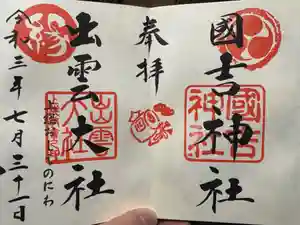 國吉神社
國吉神社
奉拝
出雲大社
出雲大社
縁
のにわ
令和三年七月三十一日